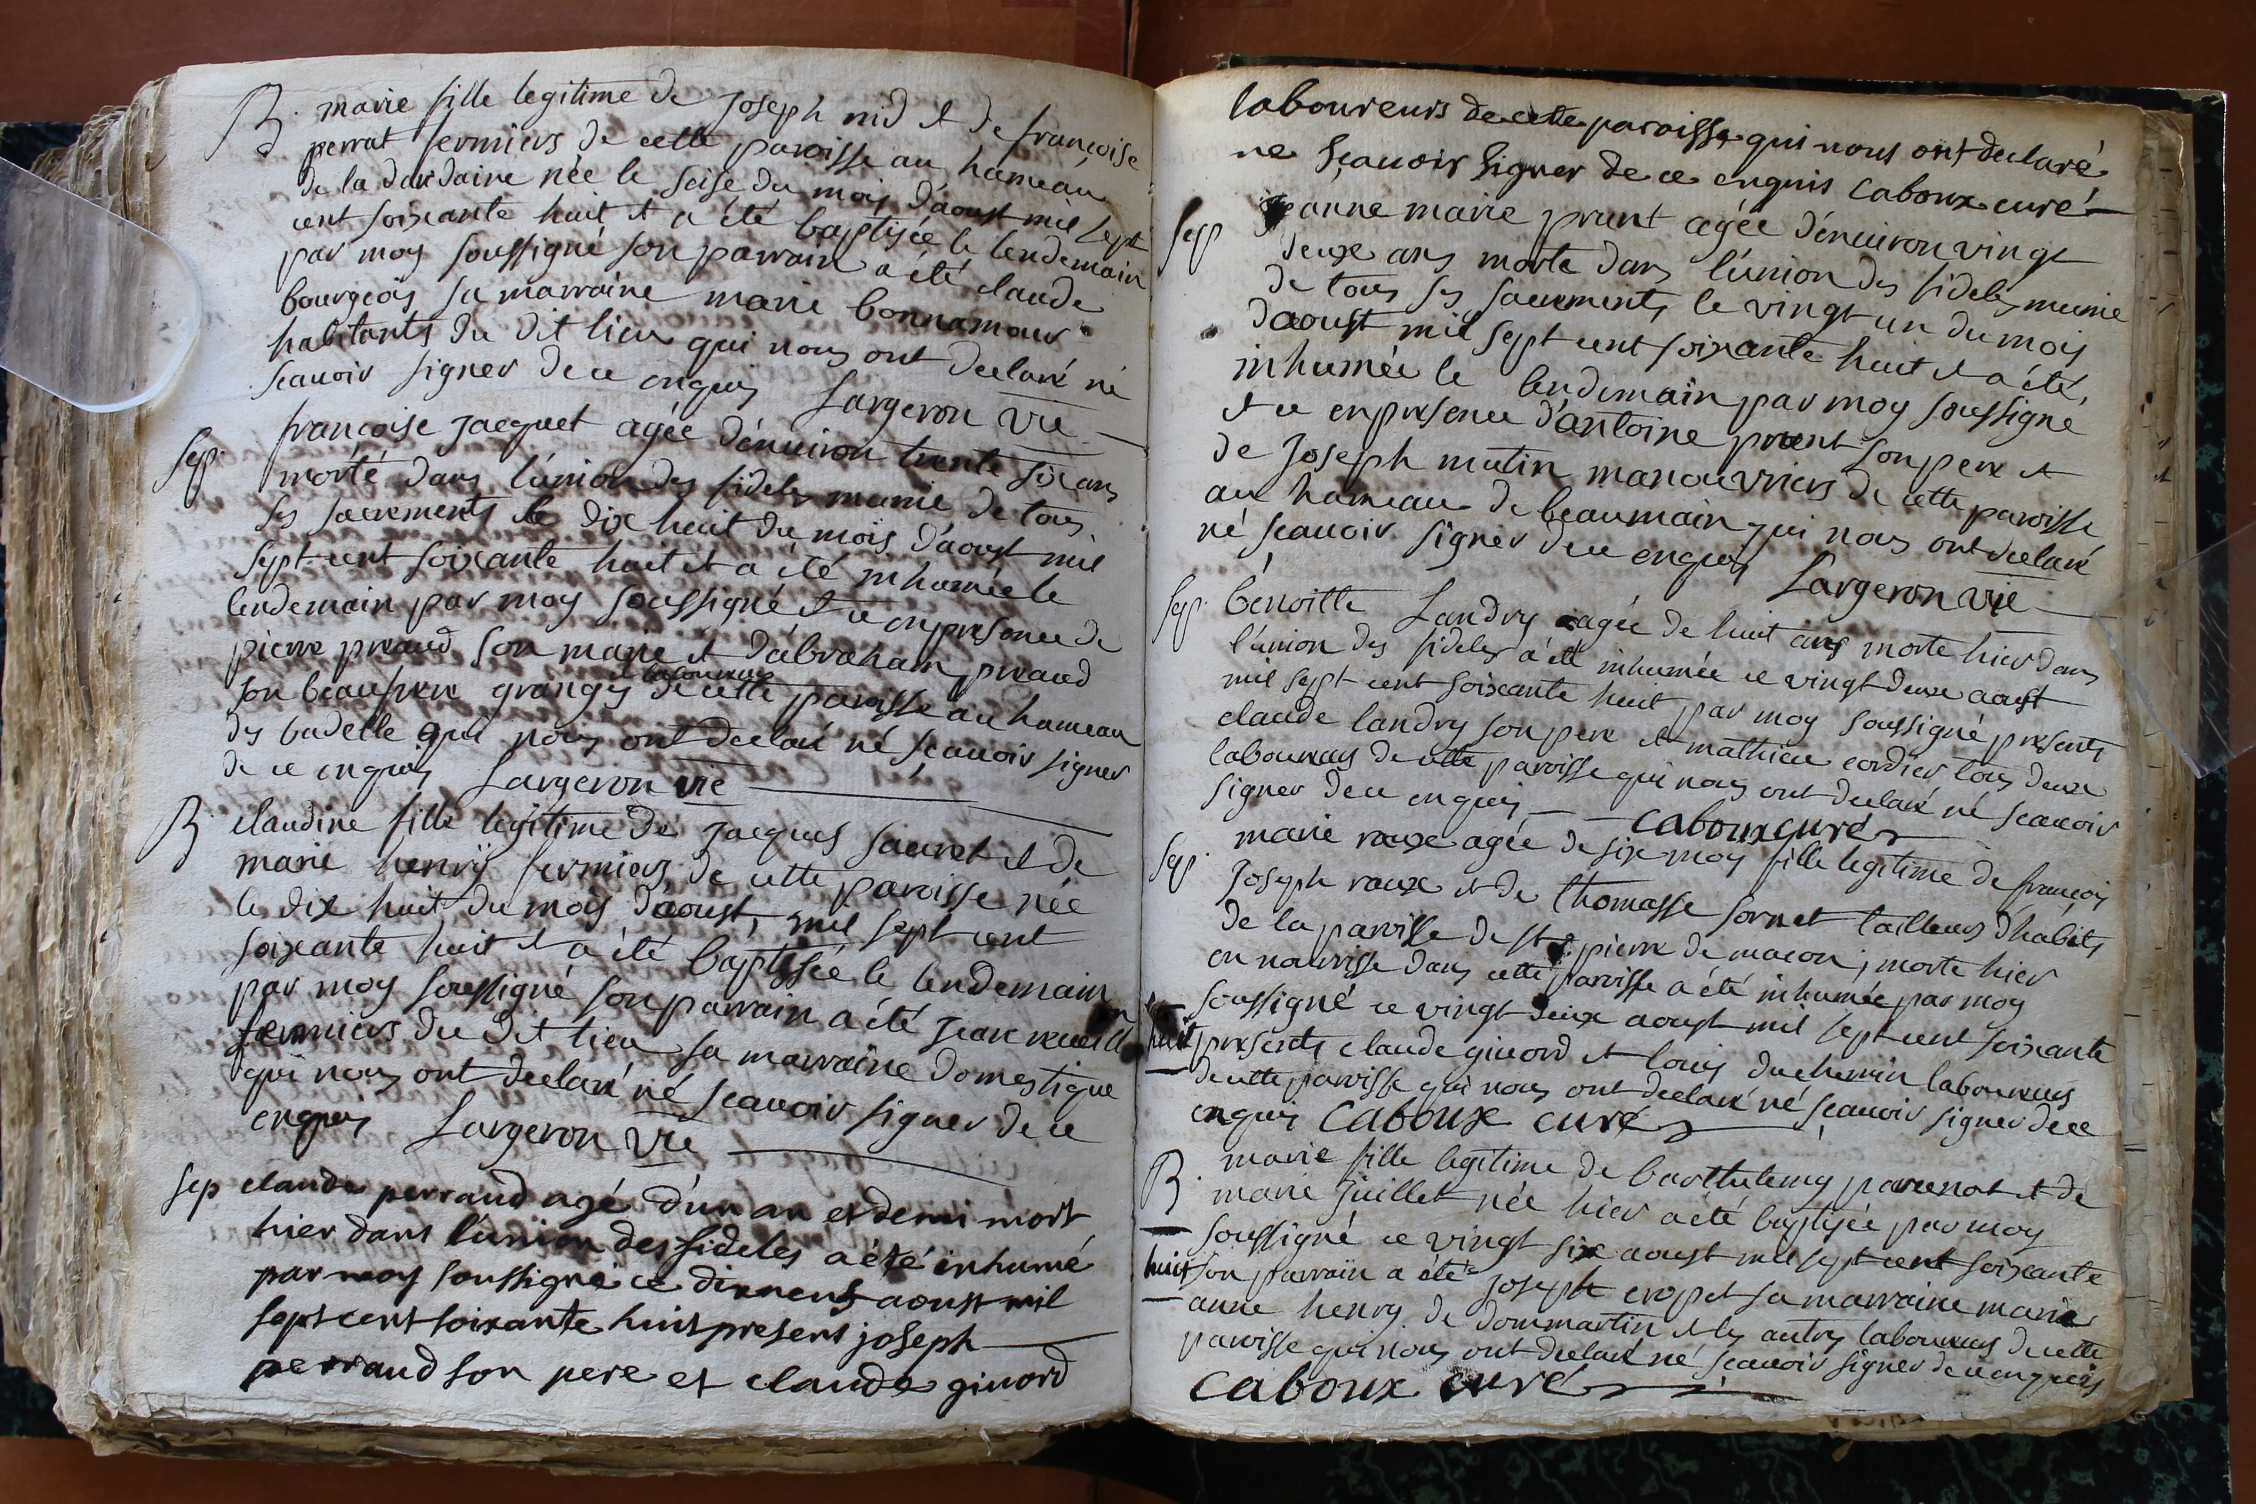 B. marie fille legitime de Joseph nid et de françoise
perrat fermiers de cette paroisse au hameau
de la dardaine née le seise du mois d'aoust mil sept
cent soixante huit et a été baptisée le lendemain
par moy soussigné son parrain a été claude
bourgeois sa marraine marie bonnamour
habitants du dit lieu qui nous ont declaré né
scauoir signer de ce enquis Largeron vie
sep. françoise jacquet agée d'enuiron trente six ans
morte dans l'union des fideles munie de tous
ses sacrements le dix huit du mois d'aoust mil
sept cent soixante huit et a été inhumée le
lendemain par moy soussigné et ce en presence de
pierre preaud son marie et d'abraham preaud
son beaufrere granges et laboureurs de cette paroisse au hameau
des badelle qui nous ont declaré né scauoir signer
de ce enquis Largeron vie
B. claudine fille legitime de jacques sauret et de
marie henry fermiers de cette paroisse née
le dix huit du mois d'aoust, mil sept cent
soixante huit et a été baptisée le lendemain
par moy soussigné son parrain a été jean
fermiers du dit lieu sa marraine domestique
qui nous ont declaré né scauoir signer de ce
enquis Largeron vie
sep claude perraud agé d'un an et demi mort
hier dans l'union des fideles a été inhumé
par moy soussigné ce dixneuf aoust mil
sept cent soixante huit present joseph
perraud son pere et claude giuord
laboureurs de cette paroisse qui nous ont declaré
ne scauoir signer de ce enquis caboux curé
sep jeanne marie prunt agée d'enuiron vingt
deux ans morte dans l'union des fideles munie
de tous ses sacrements le vingt un du mois
d'aoust mil sept cent soixante huit et a été
inhumée le lendemain par moy soussigné
et ce en presence d'antoine prunt son pere et
de Joseph mutin manouvriers de cette paroisse
au hameau de beaumain qui nous ont declaré
né scauoir signer de ce enquis Largeron vie
sep. benoitte Landry agée de huit ans morte hier dans
l'union des fideles a été inhumée ce vingt deux aoust
mil sept cent soixante huit par moy soussigné presents
claude landry son pere et mathieu cordier tous deux
laboureurs de cette paroisse qui nous ont declaré né scauoir
signer de ce enquis caboux curé
sep. marie raux agée de six moy fille legitime de françois
Joseph raux et de thomasse sornet tailleurs d'habits
de la paroisse de st pierre de macon, morte hier
en nourisse dans cette paroisse a été inhumée par moy
soussigné ce vingt deux aoust mil sept cent soixante
huit presents claude giuord et louis duchemin laboureurs
de cette paroisse qui nous ont declaré né scauoir signer de ce
enquis caboux curé
B. marie fille legitime de barthelemy et de
marie juillet née hier a été baptisée par moy
soussigné ce vingt six aoust mil sept cent soixante
huit son parrain a été joseph cropet sa marraine marie
anne henry de dommartin et les autres laboureurs de cette
paroisse qui nous ont declaré né scauoir signer de ce enquis
caboux curé